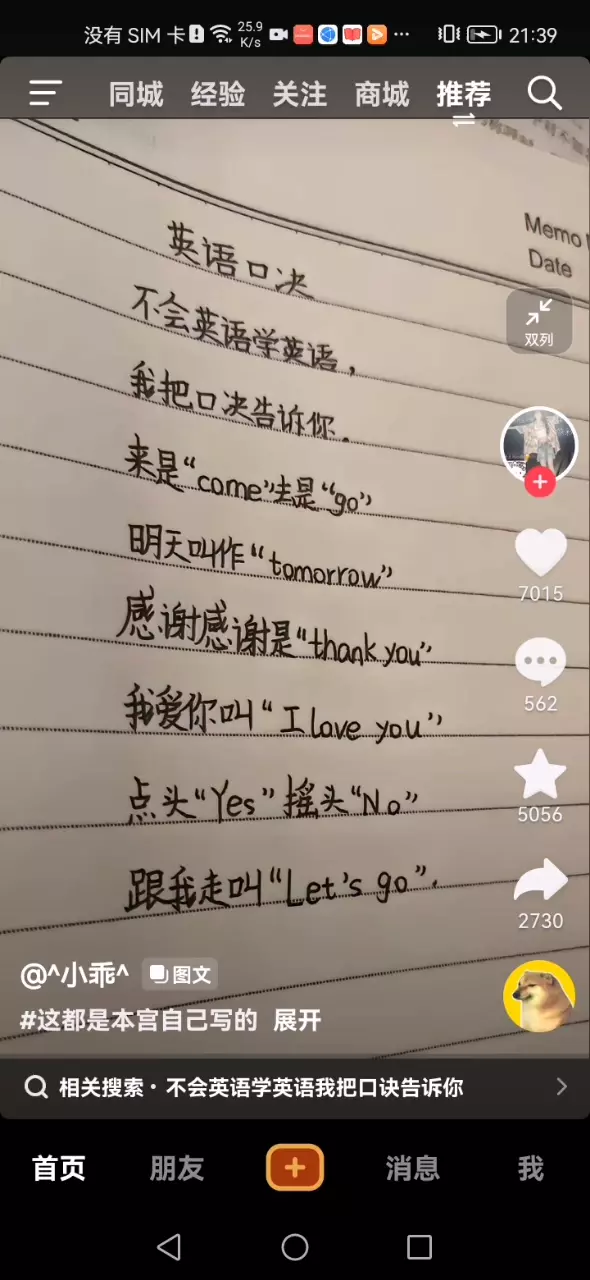 没有 SIM 卡 25.9 K/s 21:39
同城 经验 关注 商城 推荐
Memo
Date
双列
英语口决
不会英语学英语，
我把口决告诉你.
来是“come”去是“go”
明天叫作“tomorrow”
感谢感谢是“thank you”
我爱你叫“I love you”
点头“Yes”摇头“No”
跟我走叫“Let's go”.
7015
562
5056
2730
@^小乖^ 图文
#这都是本宫自己写的 展开
相关搜索· 不会英语学英语我把口诀告诉你
首页 朋友 消息 我